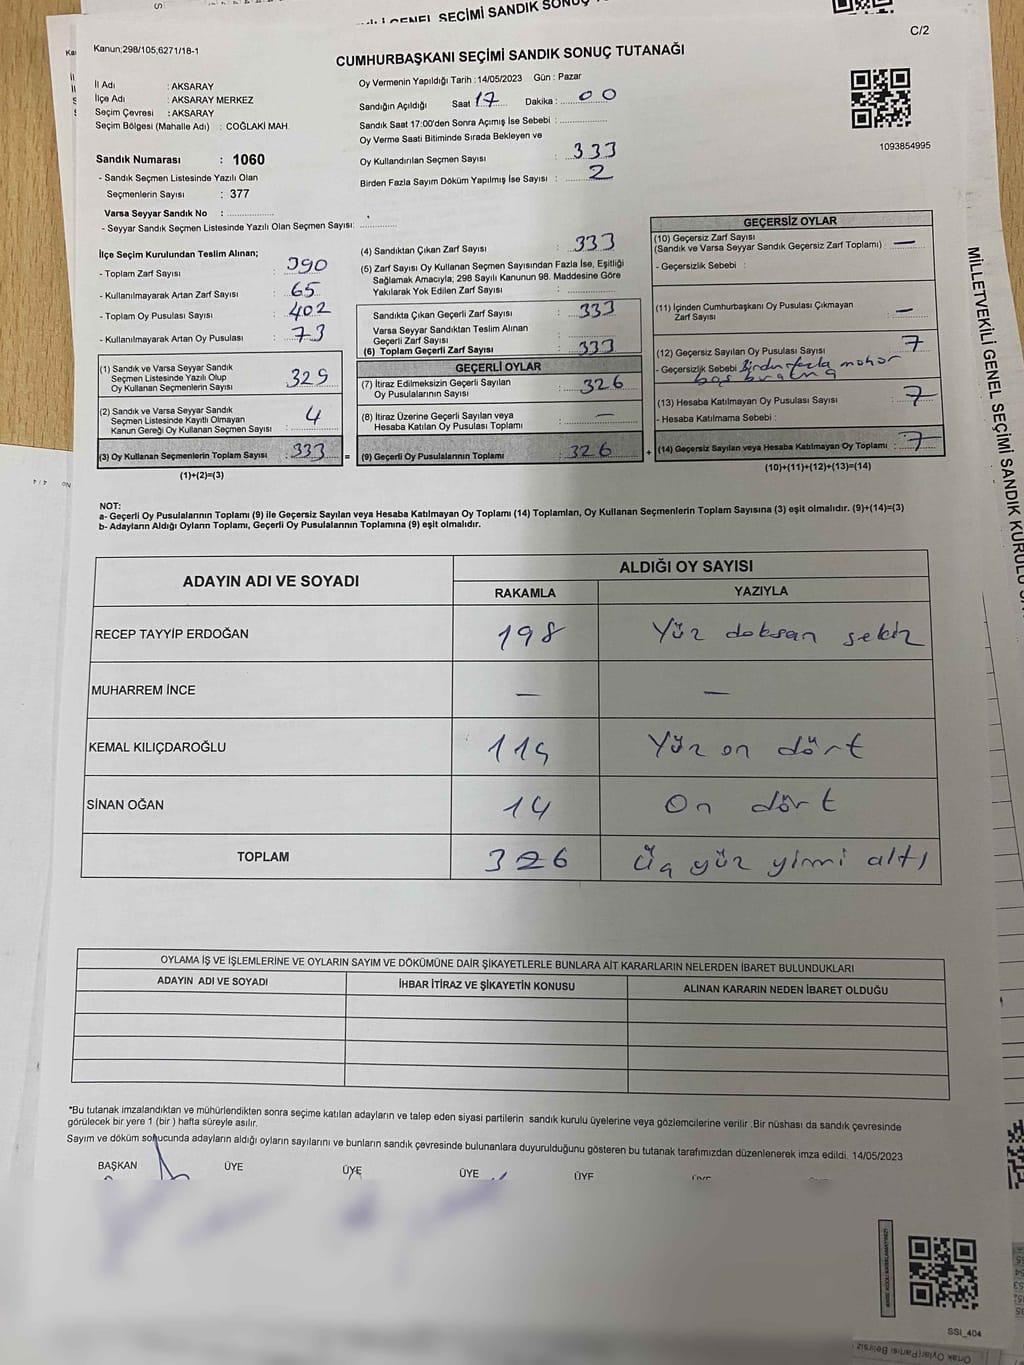 GENEL SEÇİMİ SANDIK SONUÇ
Kanun;298/105,6271/18-1
C/2
CUMHURBAŞKANI SEÇİMİ SANDIK SONUÇ TUTANAĞI
İl Adı : AKSARAY
İlçe Adı : AKSARAY MERKEZ
Seçim Çevresi : AKSARAY
Seçim Bölgesi (Mahalle Adı) : COĞLAKİ MAH.
Oy Vermenin Yapıldığı Tarih : 14/05/2023 Gün : Pazar
Sandığın Açıldığı Saat 17 Dakika : 00
Sandık Saat 17:00'den Sonra Açımış İse Sebebi :
Oy Verme Saati Bitiminde Sırada Bekleyen ve
Oy Kullandırılan Seçmen Sayısı : 333
Birden Fazla Sayım Döküm Yapılmış İse Sayısı : 2
1093854995
Sandık Numarası : 1060
- Sandık Seçmen Listesinde Yazılı Olan
Seçmenlerin Sayısı : 377
Varsa Seyyar Sandık No :
- Seyyar Sandık Seçmen Listesinde Yazılı Olan Seçmen Sayısı:
İlçe Seçim Kurulundan Teslim Alınan;
- Toplam Zarf Sayısı : 390
- Kullanılmayarak Artan Zarf Sayısı : 65
- Toplam Oy Pusulası Sayısı : 402
- Kullanılmayarak Artan Oy Pusulası : 73
(1) Sandık ve Varsa Seyyar Sandık
Seçmen Listesinde Yazılı Olup
Oy Kullanan Seçmenlerin Sayısı : 329
(2) Sandık ve Varsa Seyyar Sandık
Seçmen Listesinde Kayıtlı Olmayan
Kanun Gereği Oy Kullanan Seçmen Sayısı : 4
(3) Oy Kullanan Seçmenlerin Toplam Sayısı : 333 =
(1)+(2)=(3)
(4) Sandıktan Çıkan Zarf Sayısı : 333
(5) Zarf Sayısı Oy Kullanan Seçmen Sayısından Fazla İse, Eşitliği
Sağlamak Amacıyla; 298 Sayılı Kanunun 98. Maddesine Göre
Yakılarak Yok Edilen Zarf Sayısı :
Sandıkta Çıkan Geçerli Zarf Sayısı : 333
Varsa Seyyar Sandıktan Teslim Alınan
Geçerli Zarf Sayısı :
(6) Toplam Geçerli Zarf Sayısı : 333
GEÇERLİ OYLAR
(7) İtiraz Edilmeksizin Geçerli Sayılan
Oy Pusulalarının Sayısı : 326
(8) İtiraz Üzerine Geçerli Sayılan veya
Hesaba Katılan Oy Pusulası Toplamı : —
(9) Geçerli Oy Pusulalarının Toplamı : 326 +
GEÇERSİZ OYLAR
(10) Geçersiz Zarf Sayısı
(Sandık ve Varsa Seyyar Sandık Geçersiz Zarf Toplamı) : —
- Geçersizlik Sebebi :
(11) İçinden Cumhurbaşkanı Oy Pusulası Çıkmayan
Zarf Sayısı : —
(12) Geçersiz Sayılan Oy Pusulası Sayısı : 7
- Geçersizlik Sebebi Birden fazla mühür
boş bırakma
(13) Hesaba Katılmayan Oy Pusulası Sayısı : 7
- Hesaba Katılmama Sebebi :
(14) Geçersiz Sayılan veya Hesaba Katılmayan Oy Toplamı : 7
(10)+(11)+(12)+(13)=(14)
NOT:
a- Geçerli Oy Pusulalarının Toplamı (9) ile Geçersiz Sayılan veya Hesaba Katılmayan Oy Toplamı (14) Toplamları, Oy Kullanan Seçmenlerin Toplam Sayısına (3) eşit olmalıdır. (9)+(14)=(3)
b- Adayların Aldığı Oyların Toplamı, Geçerli Oy Pusulalarının Toplamına (9) eşit olmalıdır.
ADAYIN ADI VE SOYADI ALDIĞI OY SAYISI
RAKAMLA YAZIYLA
RECEP TAYYİP ERDOĞAN 198 Yüz doksan sekiz
MUHARREM İNCE — —
KEMAL KILIÇDAROĞLU 114 Yüz on dört
SİNAN OĞAN 14 On dört
TOPLAM 326 Üç yüz yirmi altı
OYLAMA İŞ VE İŞLEMLERİNE VE OYLARIN SAYIM VE DÖKÜMÜNE DAİR ŞİKAYETLERLE BUNLARA AİT KARARLARIN NELERDEN İBARET BULUNDUKLARI
ADAYIN ADI VE SOYADI İHBAR İTİRAZ VE ŞİKAYETİN KONUSU ALINAN KARARIN NEDEN İBARET OLDUĞU
*Bu tutanak imzalandıktan ve mühürlendikten sonra seçime katılan adayların ve talep eden siyasi partilerin sandık kurulu üyelerine veya gözlemcilerine verilir .Bir nüshası da sandık çevresinde
görülecek bir yere 1 (bir ) hafta süreyle asılır.
Sayım ve döküm sonucunda adayların aldığı oyların sayılarını ve bunların sandık çevresinde bulunanlara duyurulduğunu gösteren bu tutanak tarafımızdan düzenlenerek imza edildi. 14/05/2023
BAŞKAN ÜYE ÜYE ÜYE ÜYE
SSI_404
MİLLETVEKİLİ GENEL SEÇİMİ SANDIK KURULU